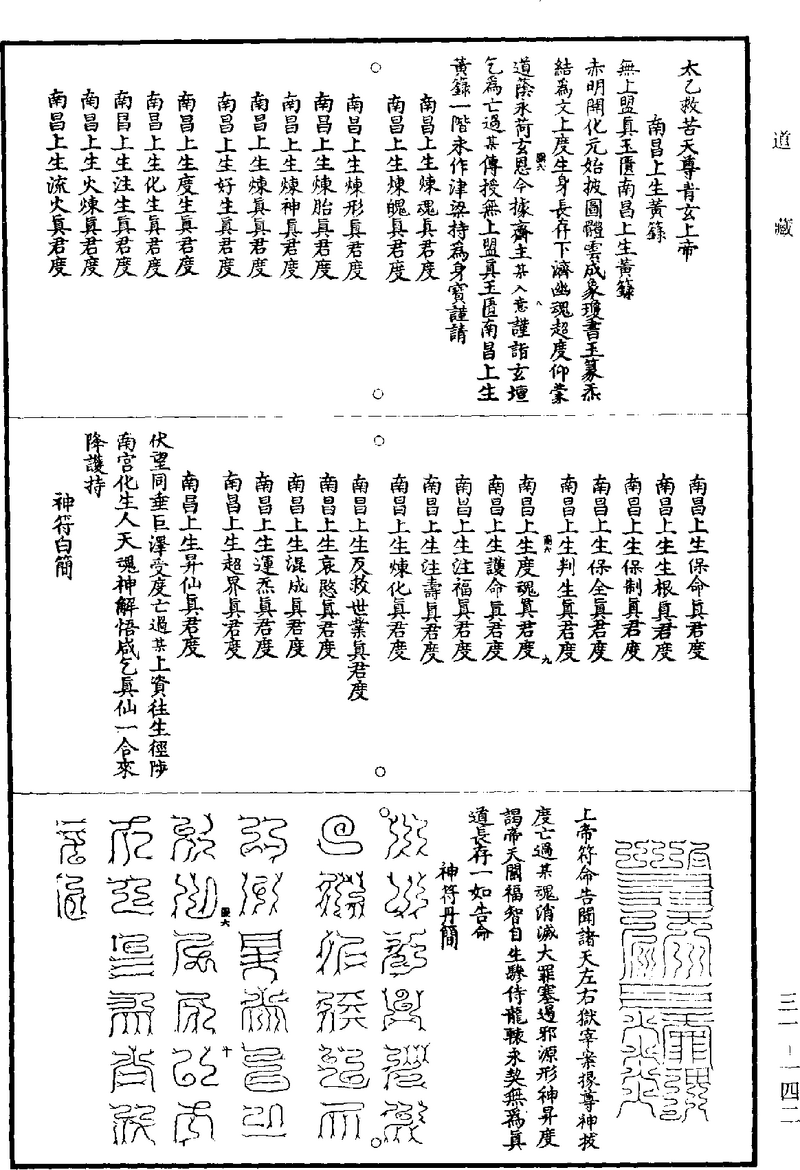 道藏
太乙救苦天尊青玄上帝
南昌上生黃籙
無上盟真玉匱南昌上生黃籙
赤明開化元始披圖體雲成象瓊書玉篆炁
結爲文上度生身長存下濟幽魂超度仰蒙
道蔭永荷玄恩今據齋主某入意謹詣玄壇
乞爲亡過某傳授無上盟真玉匱南昌上生
黃籙一階永作津梁持爲身寶謹請
南昌上生煉魂真君度
南昌上生煉魄真君度
南昌上生煉形真君度
南昌上生煉胎真君度
南昌上生煉神真君度
南昌上生煉真真君度
南昌上生好生真君度
南昌上生度生真君度
南昌上生化生真君度
南昌上生注生真君度
南昌上生火煉真君度
南昌上生流火真君度
南昌上生保命真君度
南昌上生生根真君度
南昌上生保制真君度
南昌上生保全真君度
南昌上生判生真君度
南昌上生度魂真君度
九
南昌上生護命真君度
南昌上生注福真君度
南昌上生注壽真君度
南昌上生煉化真君度
南昌上生反救世業真君度
南昌上生哀愍真君度
南昌上生混成真君度
南昌上生運炁真君度
南昌上生超界真君度
南昌上生昇仙真君度
伏望同垂巨澤受度亡過某上資往生徑陟
南宮化生人天魂神解悟咸乞真仙一合來
降護持
神符白簡
上帝符命告聞諸天左右獄宰案掾尊神拔
度亡過某魂消滅大罪塞遏邪源形神昇度
謁帝天闕福智自生驂侍龍輬永契無爲真
道長存一如告命
神符丹簡
十
三一-一四二